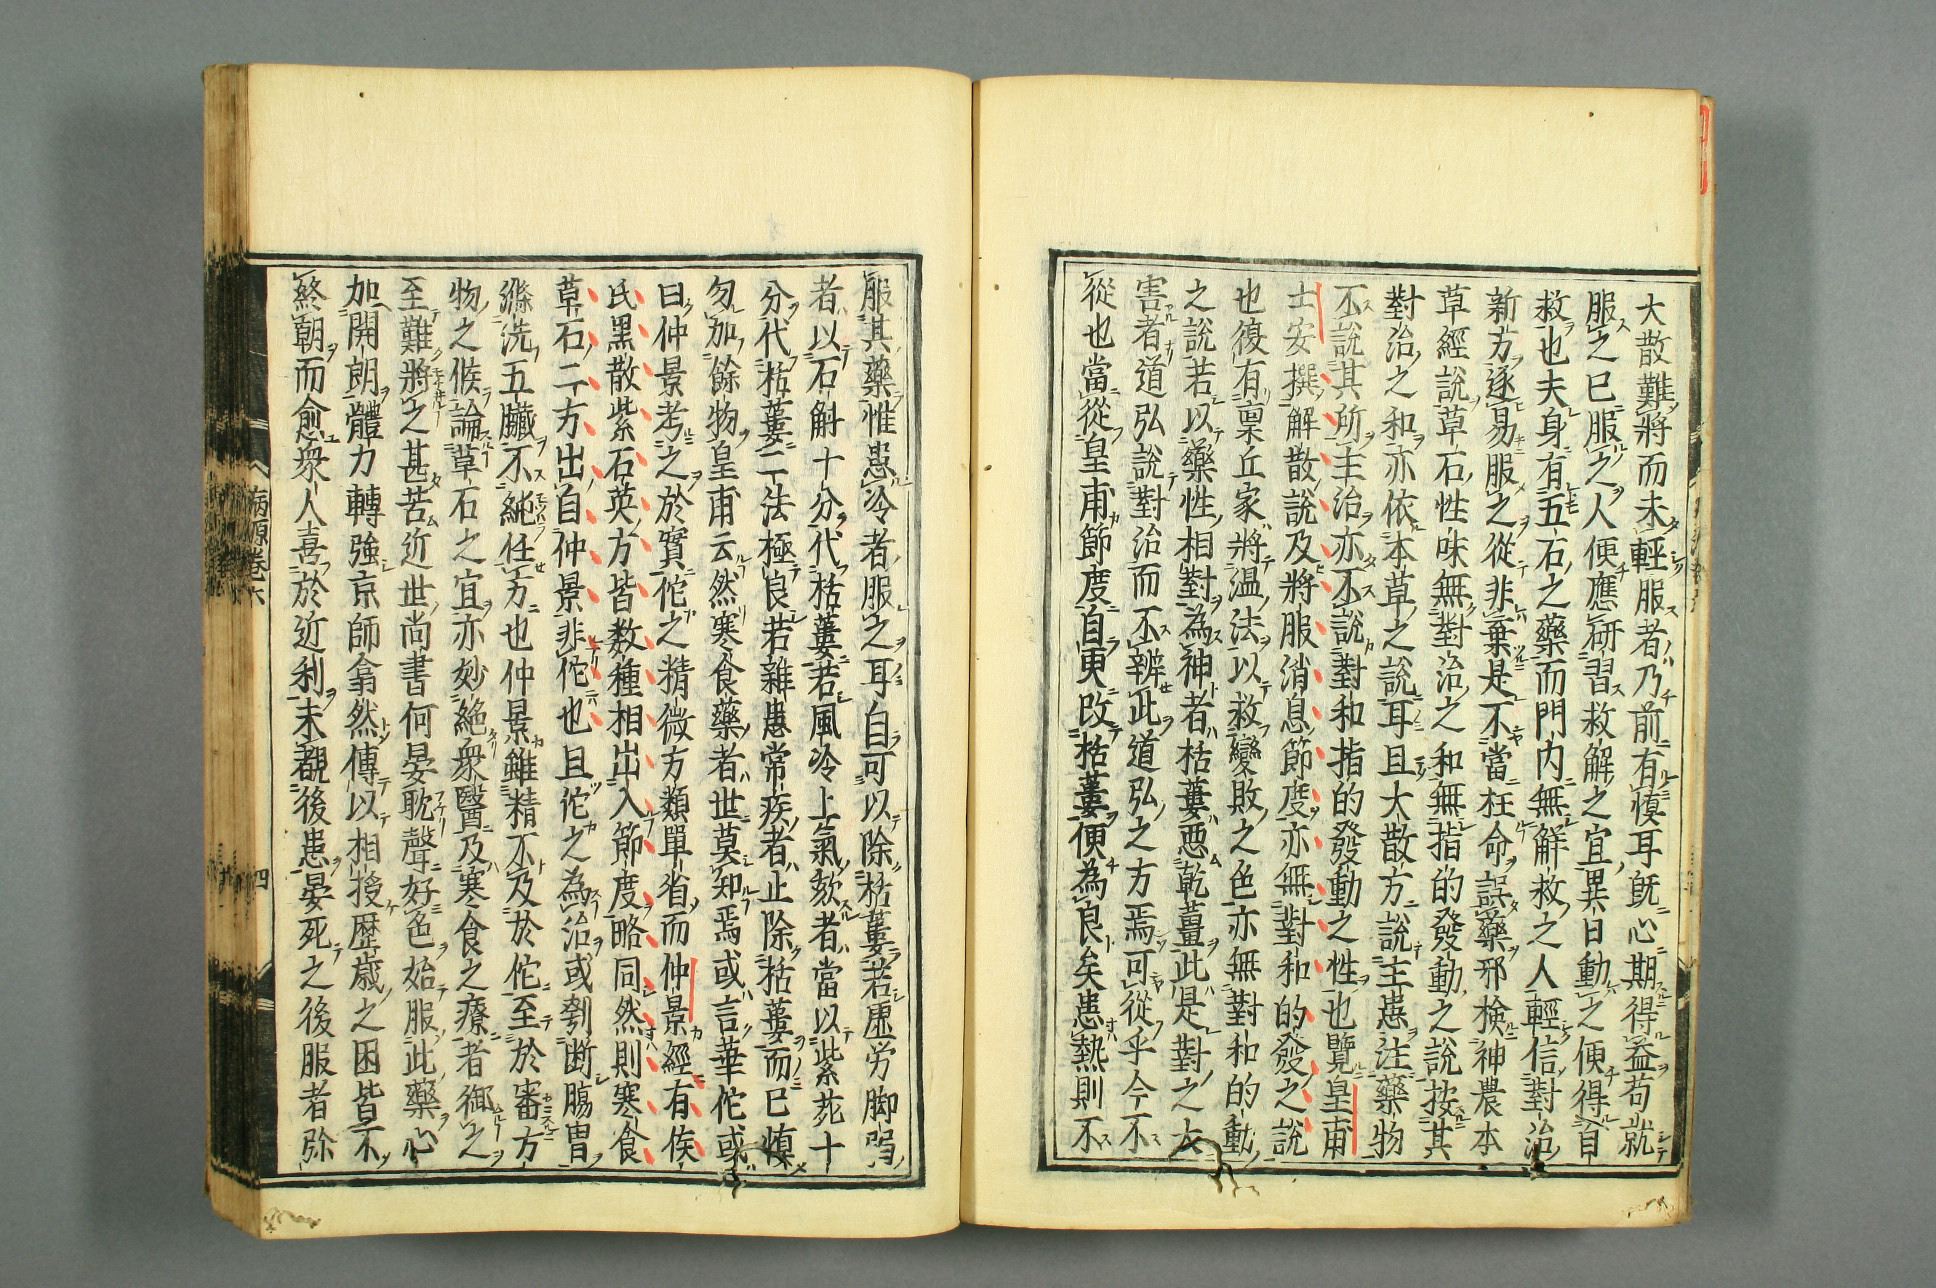 大散難將而未輕服者乃前有癁耳既心期得益苟就
服之已服之人便應研習救解之宜異日動之便得自
救也夫身有五石之藥而門内無解救之人輕信對治
新方逐易服之從非棄是不當枉命誤藥邪檢神農本
草經說草石性味無對治之和無指的發動之說按其
對治之和亦依本草之說耳且大散方說主患注藥物
不說其所主治亦不說對和指的發動之性也覽皇甫
士安撰解散說及將服消息節度亦無對和的發之說
也復有禀丘家將温法以救變敗之色亦無對和的動
之說若以藥性相對為神者栝蔞惡乾薑此是對之大
害者道弘說對治而不辨此道弘之方焉可從乎今不
從也當從皇甫節度自更改栝蔞便為良矣患熱則不
服其藥惟患冷者服之耳自可以除栝蔞若虛劳脚弱
者以石斛十分代栝蔞若風冷上氣欬者當以紫苑十
分代栝蔞二法極良若雜患常疾者止除栝蔞而已慎
勿加餘物皇甫云然寒食藥者世莫知焉或言華佗或
曰仲景考之於實佗之精微方類單省而仲景經有矦
氏黑散紫石英方皆数種相出入節度略同然則寒食
草石二方出自仲景非佗也且佗之為治或刳断膓胃
滌洗五臟不純任方也仲景雖精不及於佗至於審方
物之候論草石之宜亦妙絶衆醫及寒食之療者御之
至難將之甚苦近世尚書何晏耽聲好色始服此藥心
加開朗體力轉強京師翕然傳以相授歷歲之困皆不
終朝而愈衆人喜於近利未覩後患晏死之後服者弥
病源卷六
四